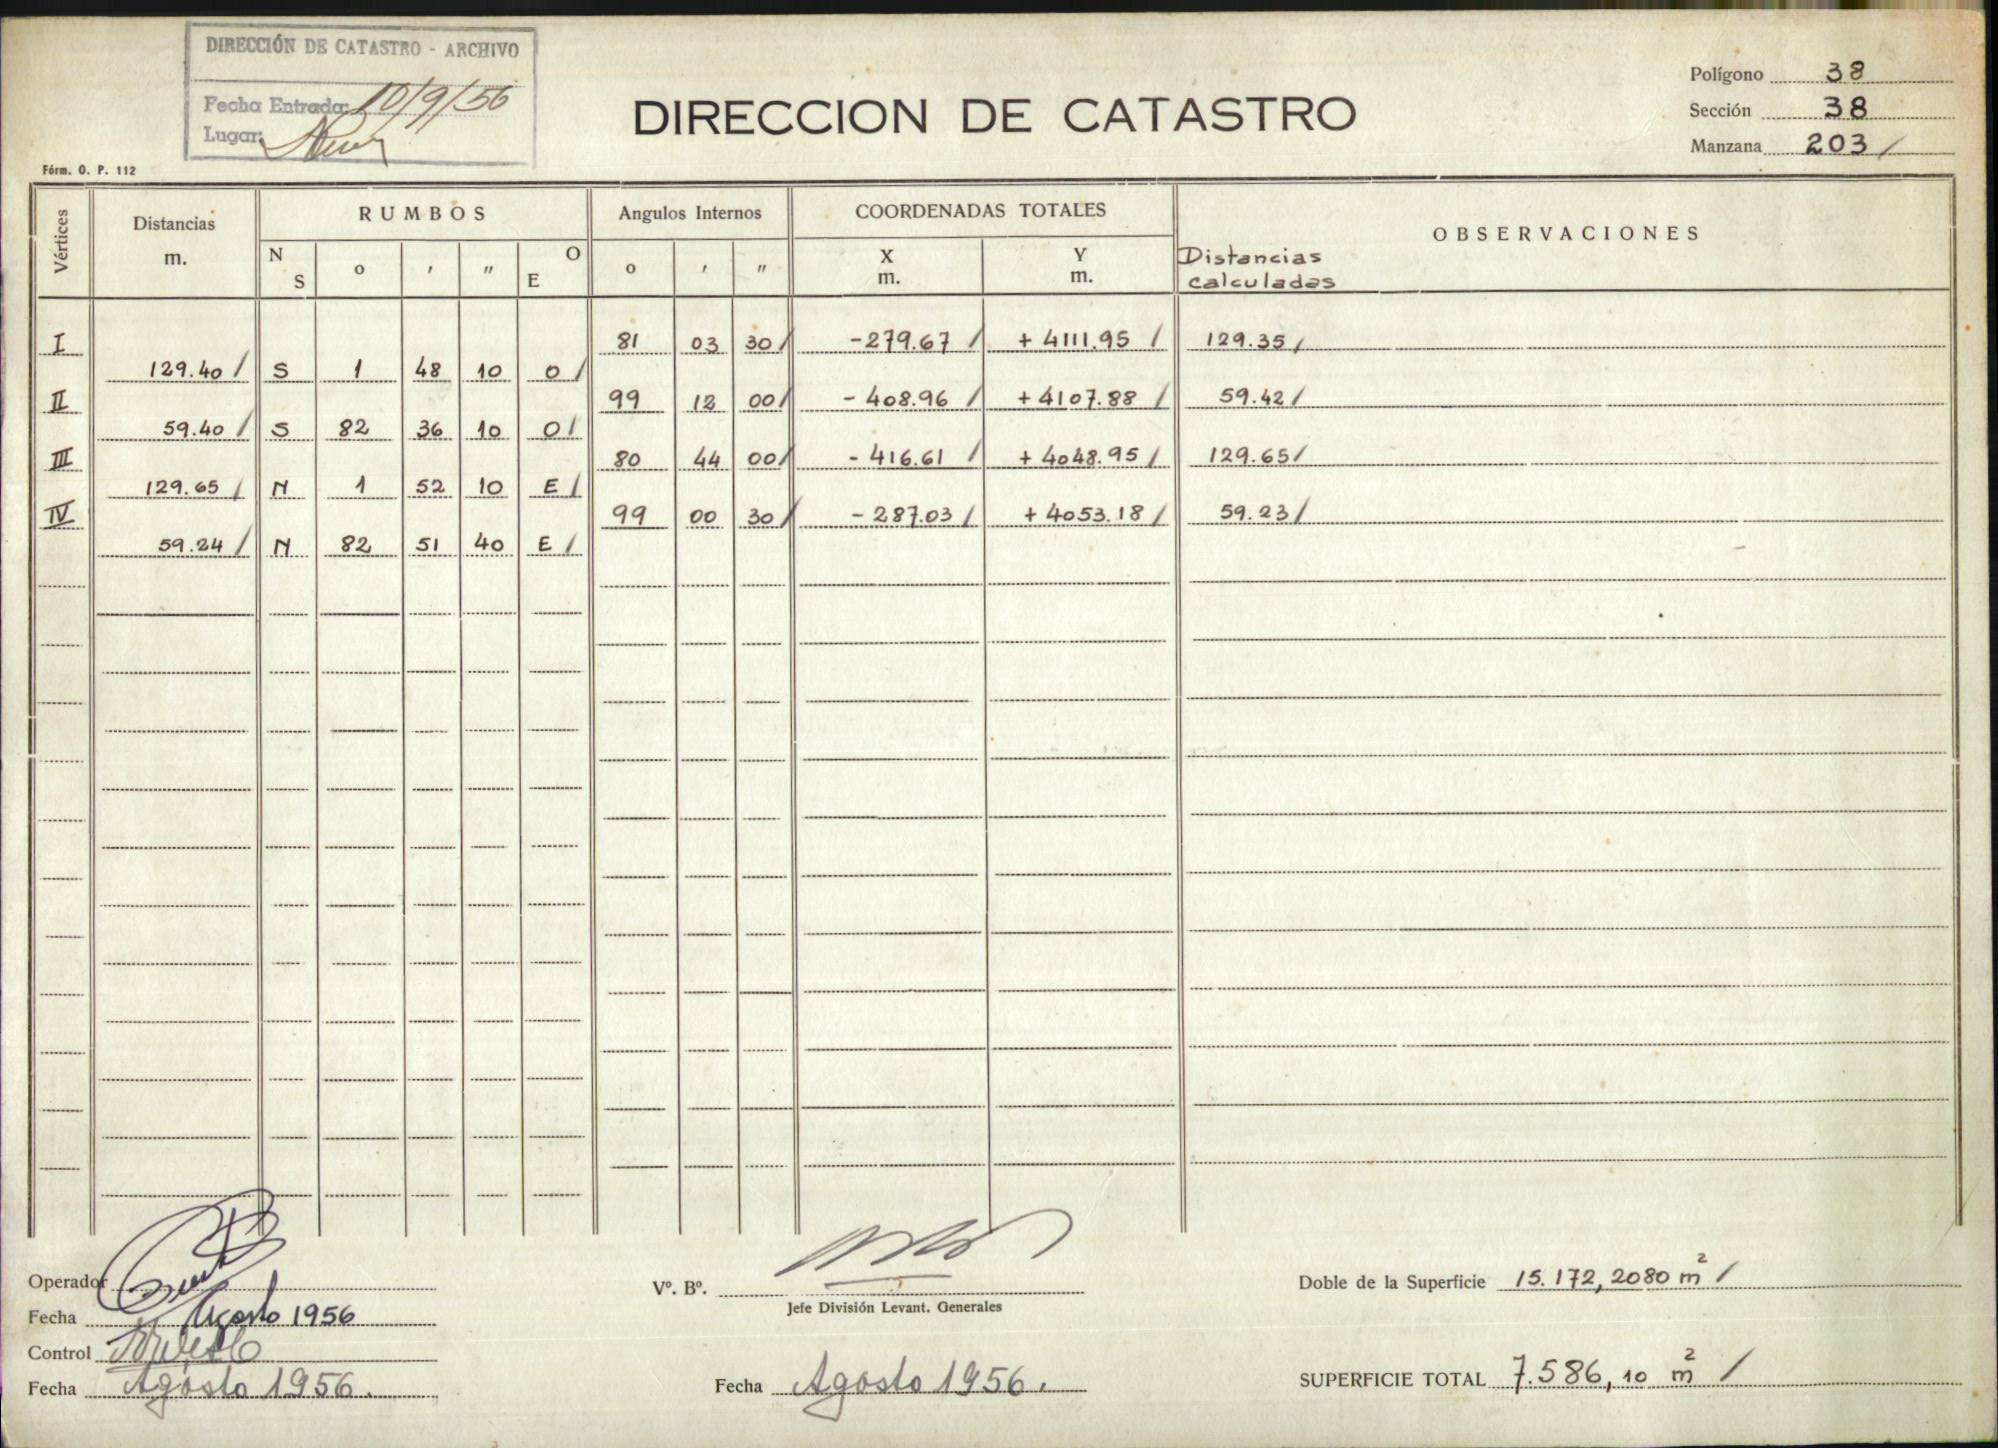 DIRECCIÓN DE CATASTRO - ARCHIVO
Fecha Entrada: 10/9/56
Lugar:
DIRECCION DE CATASTRO
Polígono 38
Sección 38
Manzana 203 /
Fórm. O. P. 112
Vértices Distancias m. RUMBOS Angulos Internos COORDENADAS TOTALES OBSERVACIONES
N S o ′ ″ O E o ′ ″ X m. Y m. Distancias calculadas
I 81 03 30 / -279.67 / + 4111.95 / 129.35 /
129.40 / S 1 48 10 O /
II 99 12 00 / - 408.96 / + 4107.88 / 59.42 /
59.40 / S 82 36 10 O /
III 80 44 00 / - 416.61 / + 4048.95 / 129.65 /
129.65 / N 1 52 10 E /
IV 99 00 30 / - 287.03 / + 4053.18 / 59.23 /
59.24 / N 82 51 40 E /
Operador
Fecha Agosto 1956
Control
Fecha Agosto 1956.
Vº. Bº.
Jefe División Levant. Generales
Fecha Agosto 1956.
Doble de la Superficie 15.172,2080 m² /
SUPERFICIE TOTAL 7.586,10 m² /